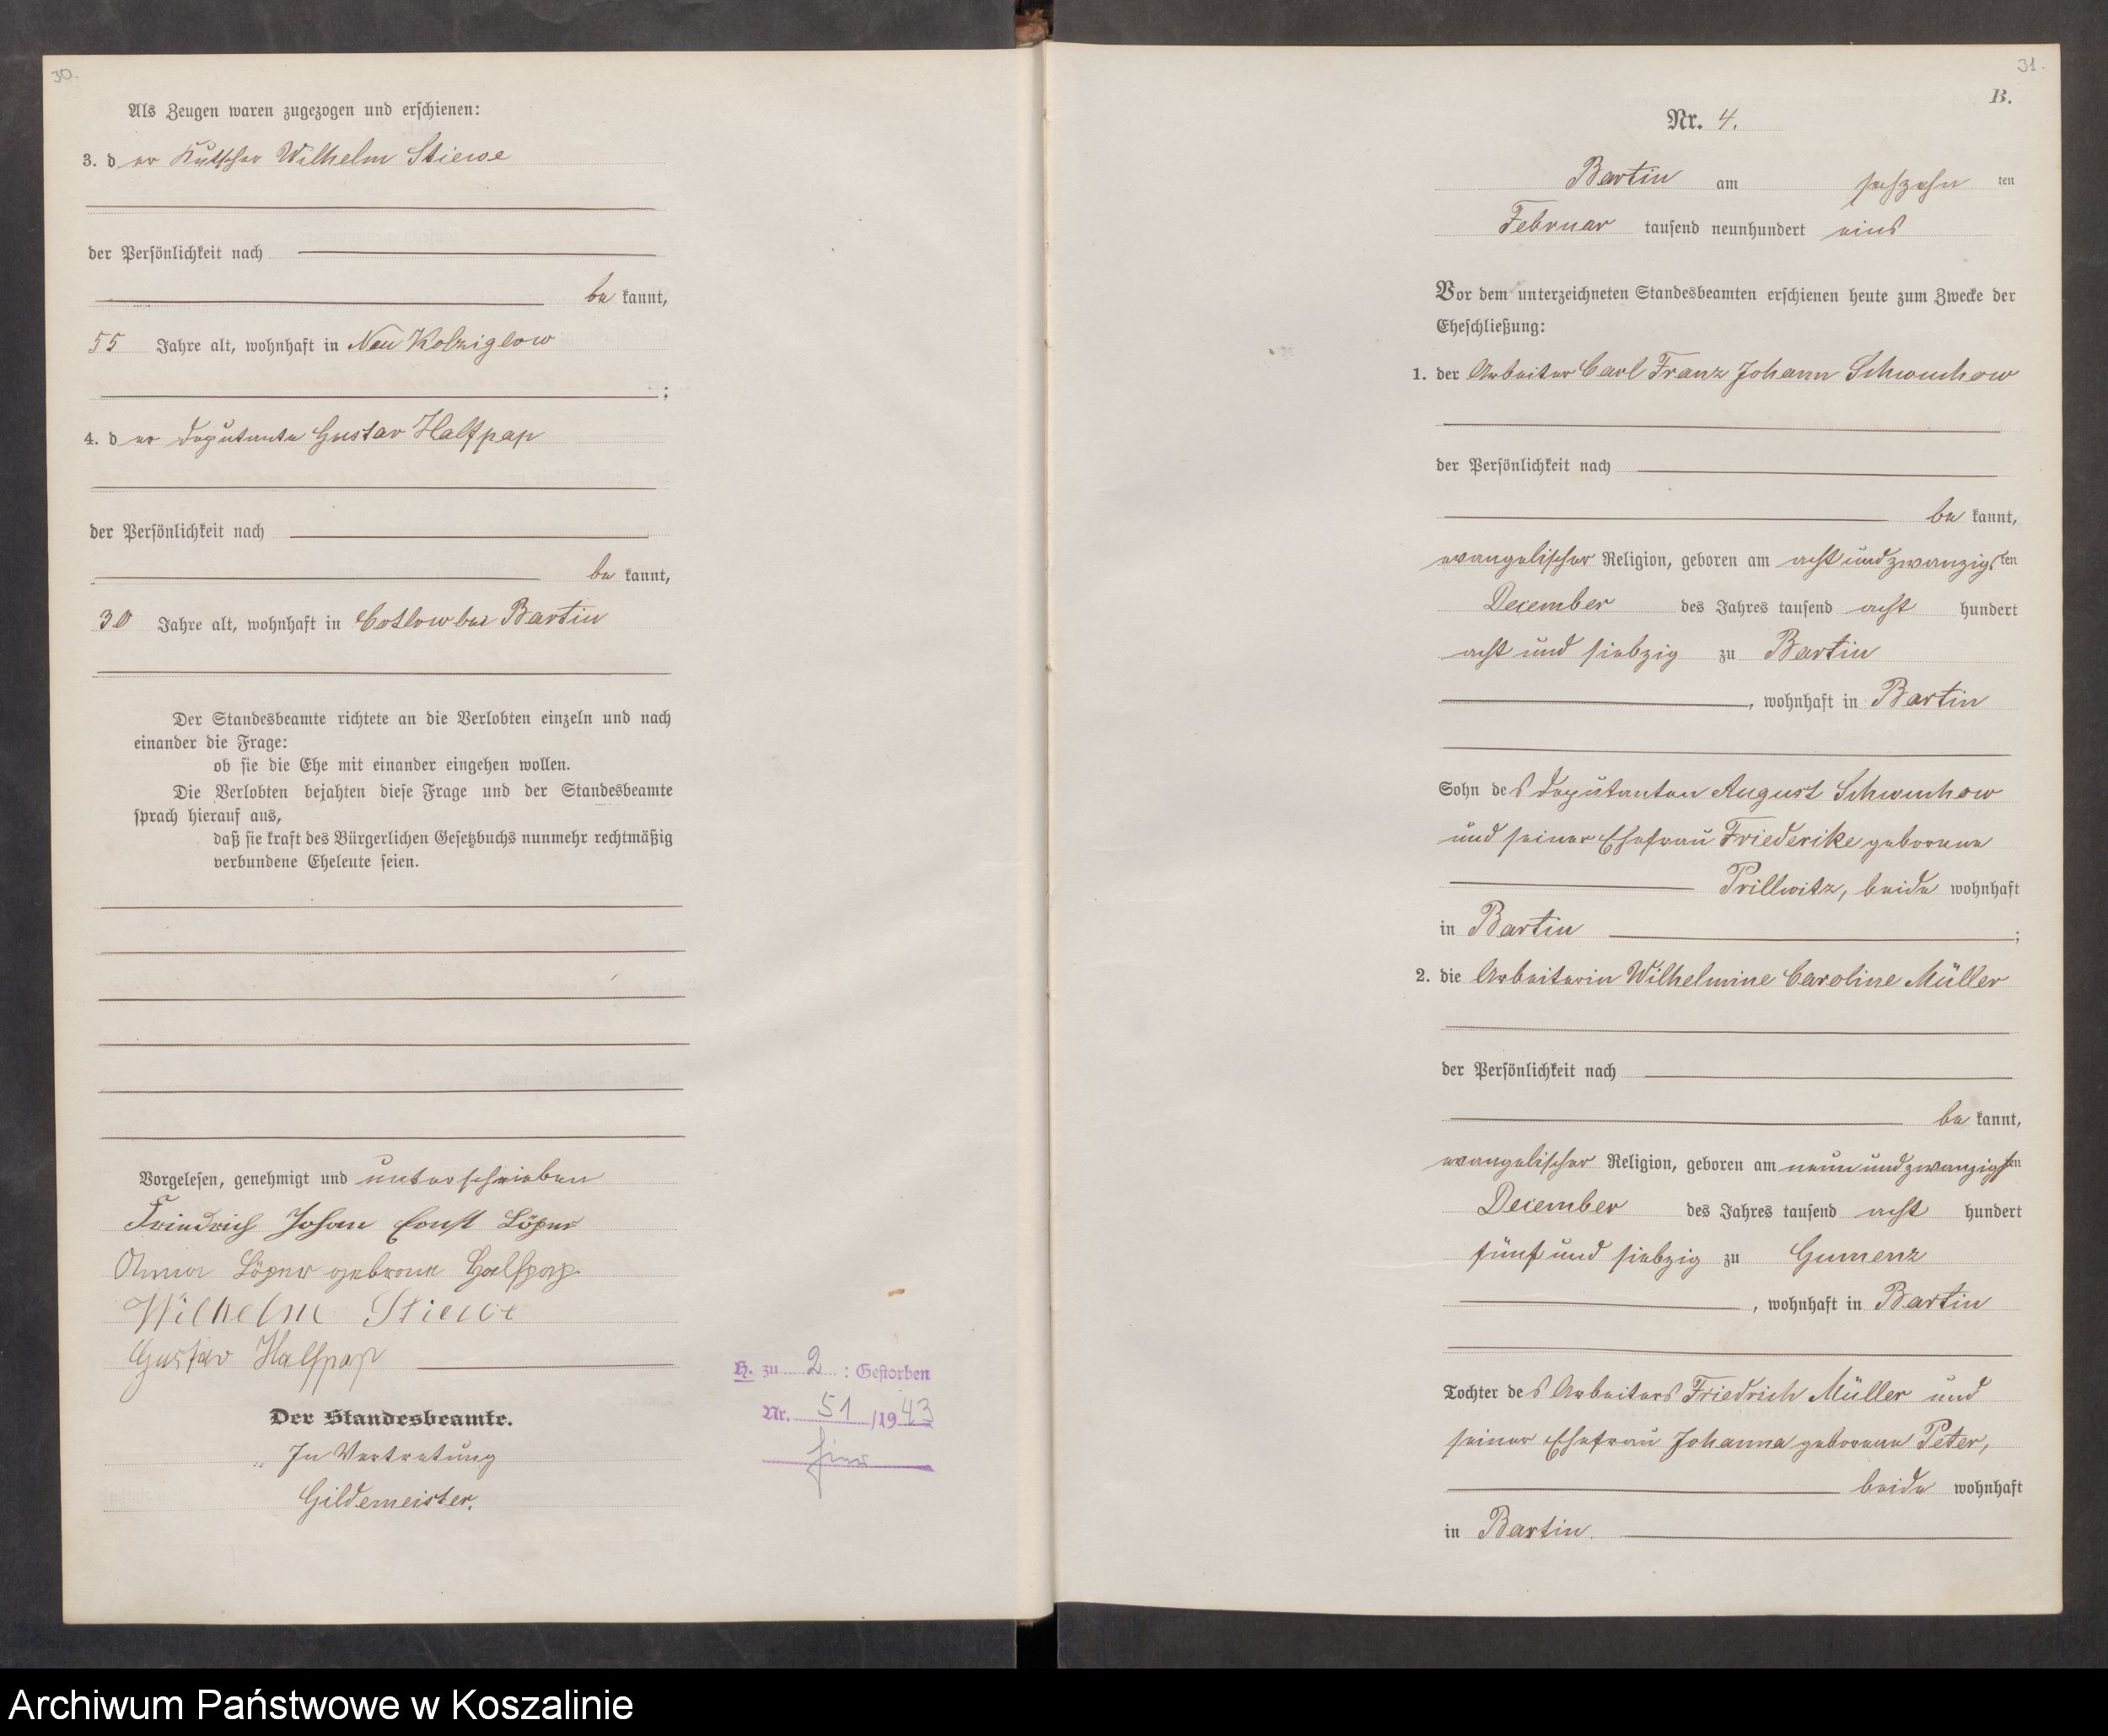 30.
Als Zeugen waren zugezogen und erschienen:
3. der Kutscher Wilhelm Stiewe
der Persönlichkeit nach
be kannt,
55 Jahre alt, wohnhaft in Neu Kolziglow
;
4. der Deputante Gustav Halfpap
der Persönlichkeit nach
be kannt,
30 Jahre alt, wohnhaft in Cotlow bei Bartin
Der Standesbeamte richtete an die Verlobten einzeln und nach
einander die Frage:
ob sie die Ehe mit einander eingehen wollen.
Die Verlobten bejahten diese Frage und der Standesbeamte
sprach hierauf aus,
daß sie kraft des Bürgerlichen Gesetzbuchs nunmehr rechtmäßig
verbundene Eheleute seien.
Vorgelesen, genehmigt und unterschrieben
Friedrich Johan Ernst Löper
Anna Löper geborene Halfpap
Wilhelm Stiewe
Gustav Halfpap
Der Standesbeamte.
In Vertretung
Gildemeister.
H. zu 2 : Gestorben
Nr. 51 /1943
31.
B.
Nr. 4.
Bartin am sechzehn ten
Februar tausend neunhundert eins
Vor dem unterzeichneten Standesbeamten erschienen heute zum Zwecke der
Eheschließung:
1. der Arbeiter Carl Franz Johann Schwuchow
der Persönlichkeit nach
be kannt,
evangelischer Religion, geboren am acht und zwanzigsten
December des Jahres tausend acht hundert
acht und siebzig zu Bartin
, wohnhaft in Bartin
Sohn des Deputanten August Schwuchow
und seiner Ehefrau Friederike geborene
Prillwitz, beide wohnhaft
in Bartin ;
2. die Arbeiterin Wilhelmine Caroline Müller
der Persönlichkeit nach
be kannt,
evangelischer Religion, geboren am neun und zwanzigsten
December des Jahres tausend acht hundert
fünf und siebzig zu Gumenz
, wohnhaft in Bartin
Tochter des Arbeiters Friedrich Müller und
seiner Ehefrau Johanna geborene Peter,
beide wohnhaft
in Bartin.
Archiwum Państwowe w Koszalinie